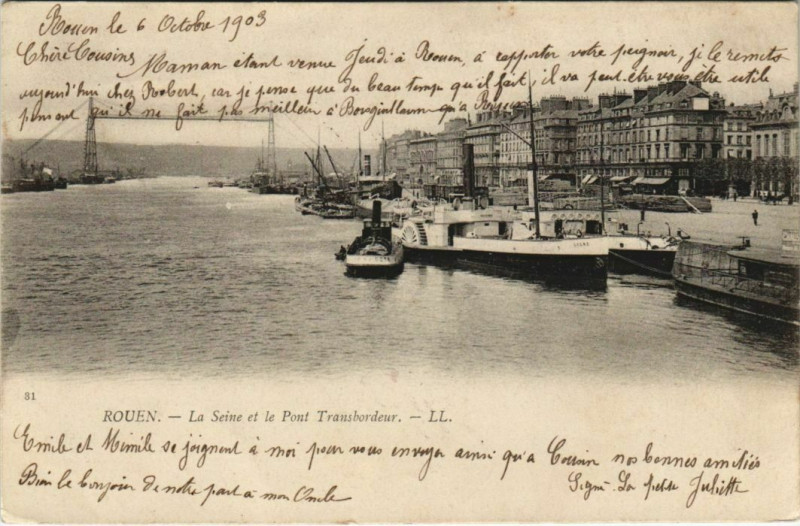 Rouen le 6 Octobre 1903
Chère Cousins
Maman étant venue Jeudi à Rouen, à rapporter votre peignoir, je le remets
aujourd'hui chez Robert, car je pense que du beau temps qu'il fait, il va peut-être vous être utile
pensant qu'il ne fait pas meilleur à qu'à Rouen
31
ROUEN. — La Seine et le Pont Transbordeur. — LL.
Emile et Mimile se joignent à moi pour vous envoyer ainsi qu'à Cousin nos bonnes amitiés
Bien le bonjour de notre part à mon Oncle
Signé La petite Juliette